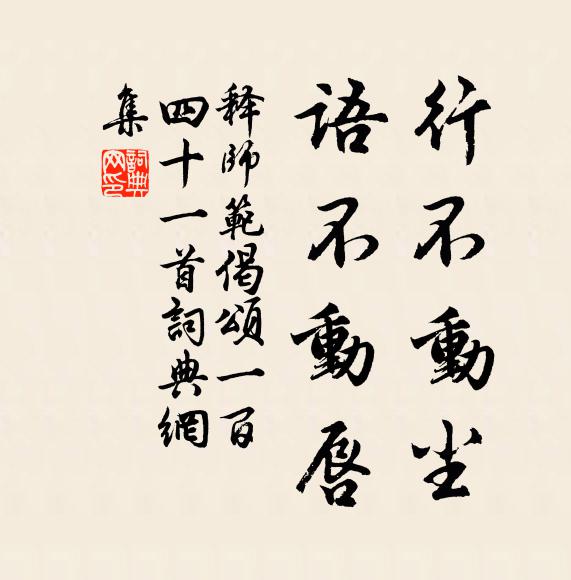 行不動尘
語不動唇
释師範偈頌一百
四十一首詞典網
集
詞典网印